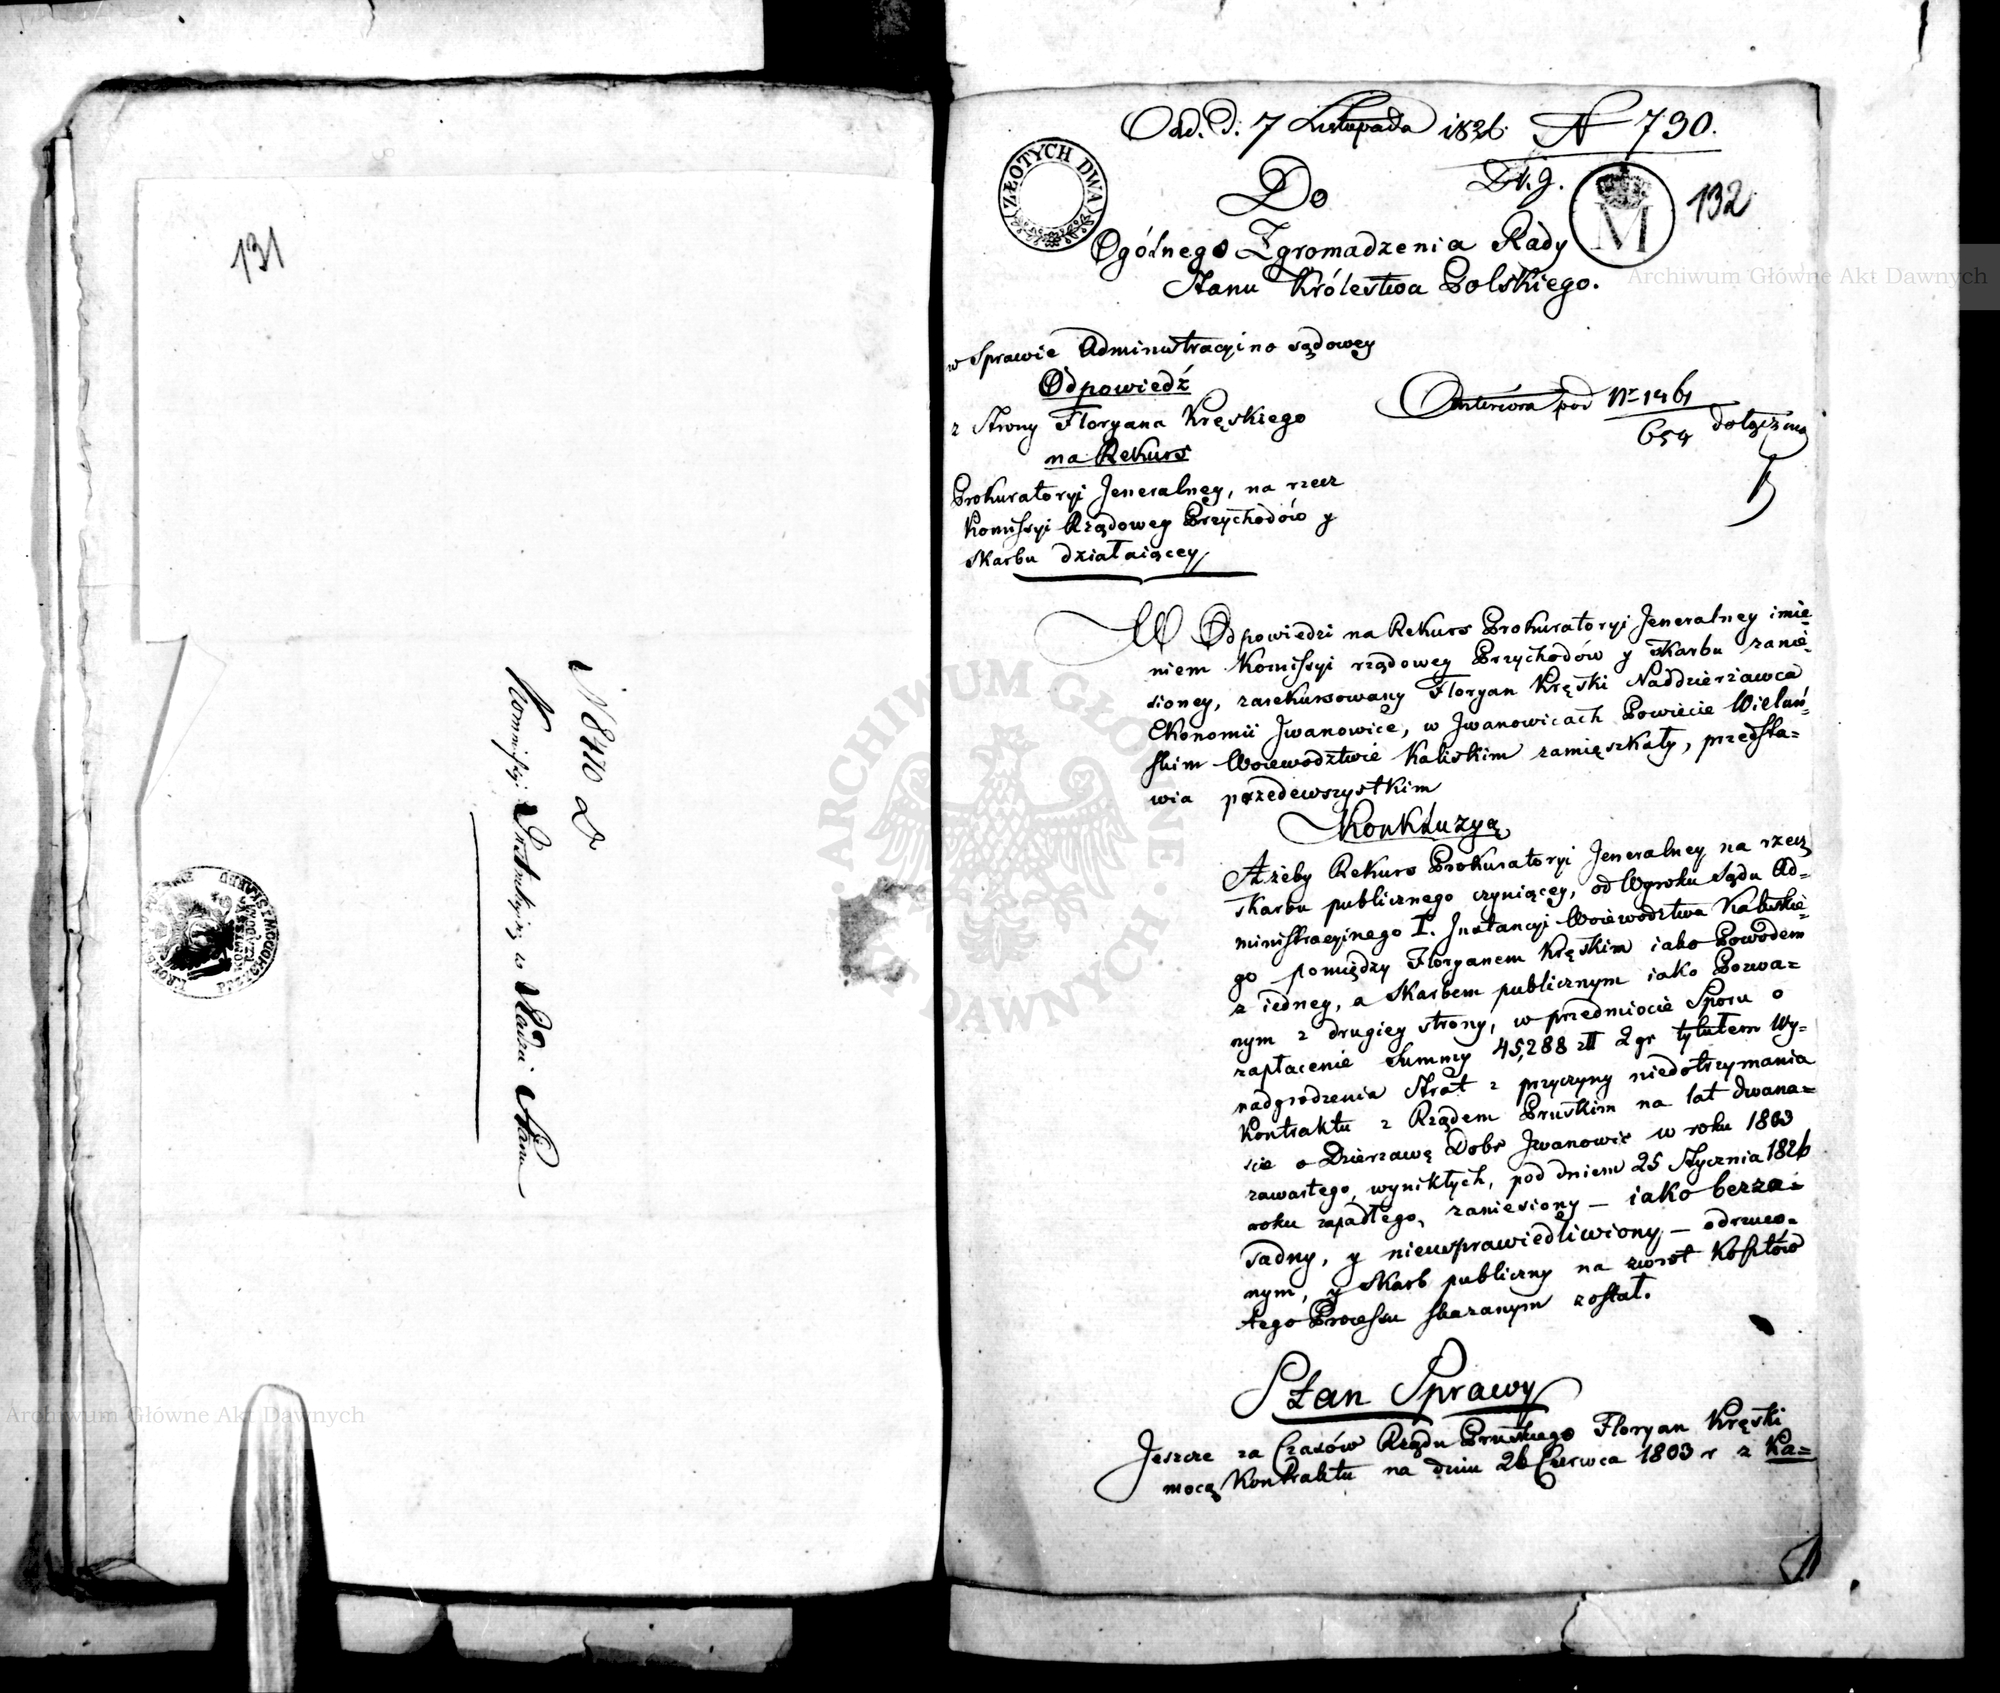 131
N 8470 D
Kommissyi Instrukcyiney w Radzie Stanu
Odd. D. 7 Listopada 1826. N 790.
Dv. g.
ZŁOTYCH DWA
M
132
Do
Ogólnego Zgromadzenia Rady
Stanu Królestwa Polskiego.
w Sprawie Administracyino sądowey
Odpowiedź
z Strony Floryana Kręskiego
na Rekurs
Prokuratoryi Jeneralney, na rzecz
Komissyi Rządowey Przychodów y
Skarbu działaiącey
pod Nr 1461
654 dołączona
W Odpowiedzi na Rekurs Prokuratoryi Jeneralney imie-
niem Komissyi rządowey Przychodów y Skarbu zanie-
sioney, zarekursowany Floryan Kręski Naddzierzawca
Ekonomii Jwanowice, w Jwanowicach Powiecie Wieluń-
skim Woiewodztwie Kaliskim zamięszkały, przedsta=
wia przedewszystkim
Konkluzyą
Ażeby Rekurs Prokuratoryi Jeneralney na rzecz
Skarbu publicznego czyniącey, od Wyroku Sądu Ad=
ministracyinego I. Jnstancyi Woiewodztwa Kaliskie-
go pomiędzy Floryanem Kręskim iako Powodem
z iedney, a Skarbem publicznym iako Pozwa=
nym z drugiey strony, w przedmiocie Sporu o
zapłacenie Summy 45,288 złł 2 gr tytułem Wy-
nadgrodzenia Strat z przyczyny niedotrzymania
Kontraktu z Rządem Pruskim na lat dwana=
ście o Dzierzawę Dobr Jwanowic w roku 1803
zawartego, wynikłych, pod dniem 25 Stycznia 1826
roku zapadłego, zaniesiony — iako bezza=
sadny, y nieusprawiedliwiony — odrzuco-
nym, y Skarb publiczny na zwrot Kosztów
tego Processu skazanym został.
Stan Sprawy
Jeszcze za Czasów Rządu Pruskiego Floryan Kręski
mocą Kontraktu na dniu 26 Czerwca 1803 r z Ka=
ARCHIWUM GŁÓWNE AKT DAWNYCH
Archiwum Główne Akt Dawnych
Archiwum Główne Akt Dawnych